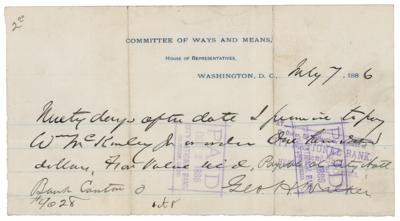 2nd
COMMITTEE OF WAYS AND MEANS,
HOUSE OF REPRESENTATIVES,
WASHINGTON, D. C., July 7, 1886
Ninety days after date I promise to pay
Wm McKinley Jr or order One hundred
dollars, For Value rec'd, Payable at City Natl
Bank Canton O Geo H. Walker
PAID
PAID
BANK